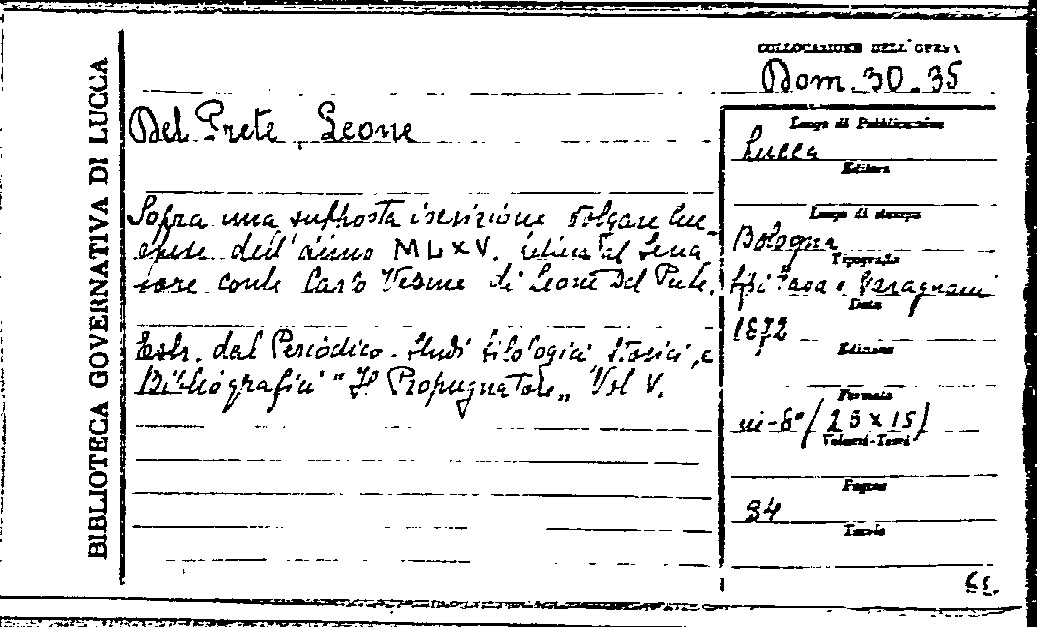 BIBLIOTECA GOVERNATIVA DI LUCCA
COLLOCAZIONE DELL'OPERA
Dom. 30. 35
Del Prete, Leone
Sofra una supposta iscrizione volgare luc-
chese dell'anno MLXV. Lettera al Sena
tore conte Carlo Vesme di Leone Del Prete.
Estr. dal Periodico. Studi filologici, storici, e
Bibliografici "Il Propugnatore" Vol V.
Luogo di Pubblicazione
Lucca
Editore
Luogo di stampa
Bologna
Tipografia
tipi Fava e Garagnani
Data
1872
Edizione
Formato
in-8° (23 x 15)
Volumi-Tomi
Pagine
34
Tavole